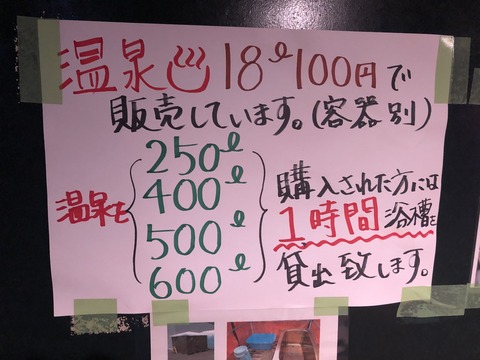 温泉♨18ℓ100円で
販売しています。(容器別)
温泉を
250ℓ
400ℓ
500ℓ
600ℓ
購入された方には
1時間浴槽を
貸出致します。